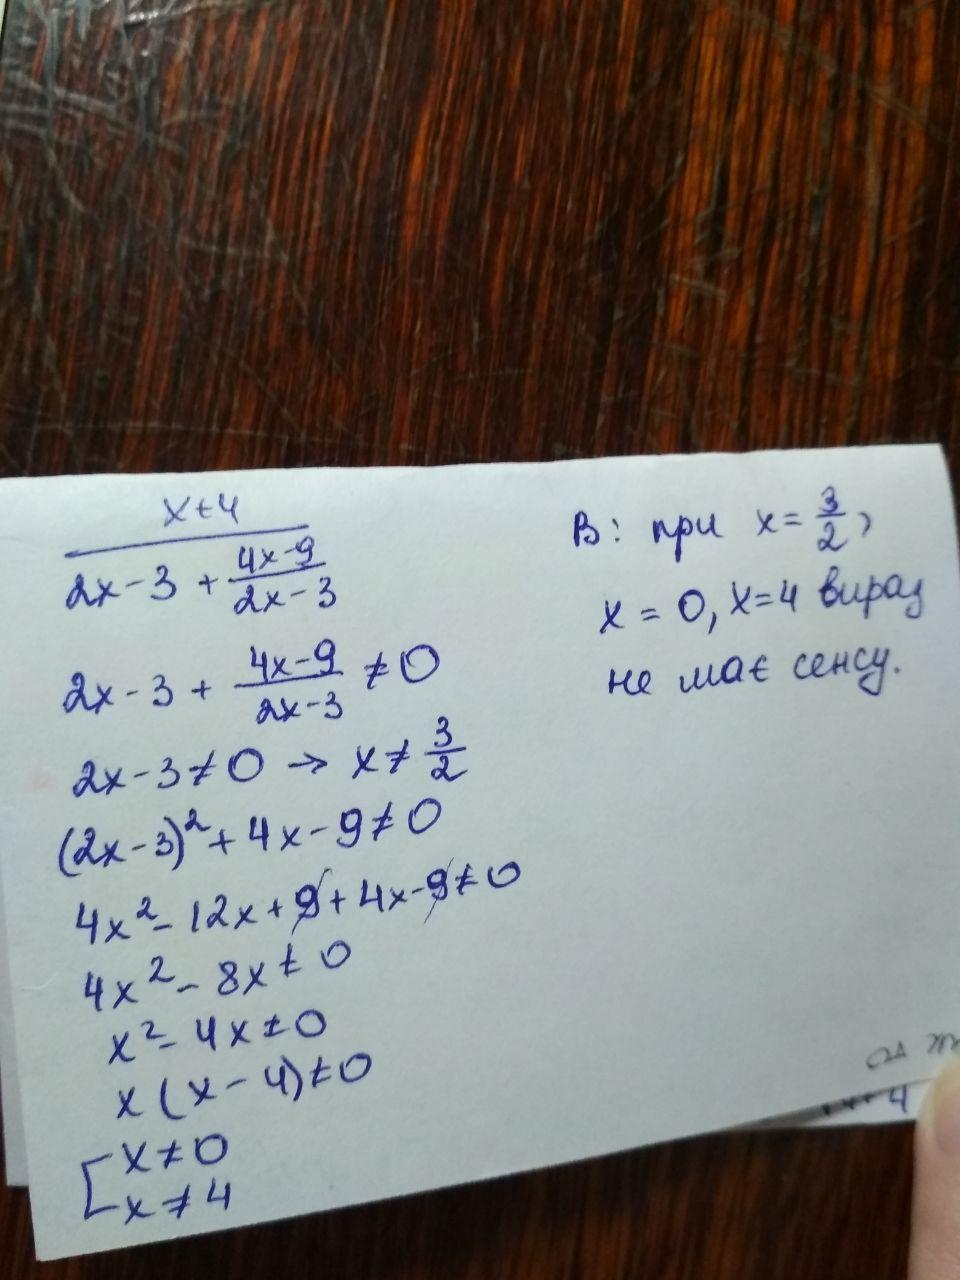 x+4
2x-3 + 4x-9
2x-3
2x-3 + 4x-9 ≠ 0
2x-3
2x-3 ≠ 0 → x ≠ 3/2
(2x-3)² + 4x - 9 ≠ 0
4x² - 12x + 9 + 4x - 9 ≠ 0
4x² - 8x ≠ 0
x² - 4x ≠ 0
x(x-4) ≠ 0
[ x ≠ 0
x ≠ 4
В: при x = 3/2,
x = 0, x=4 вираз
не має сенсу.
4